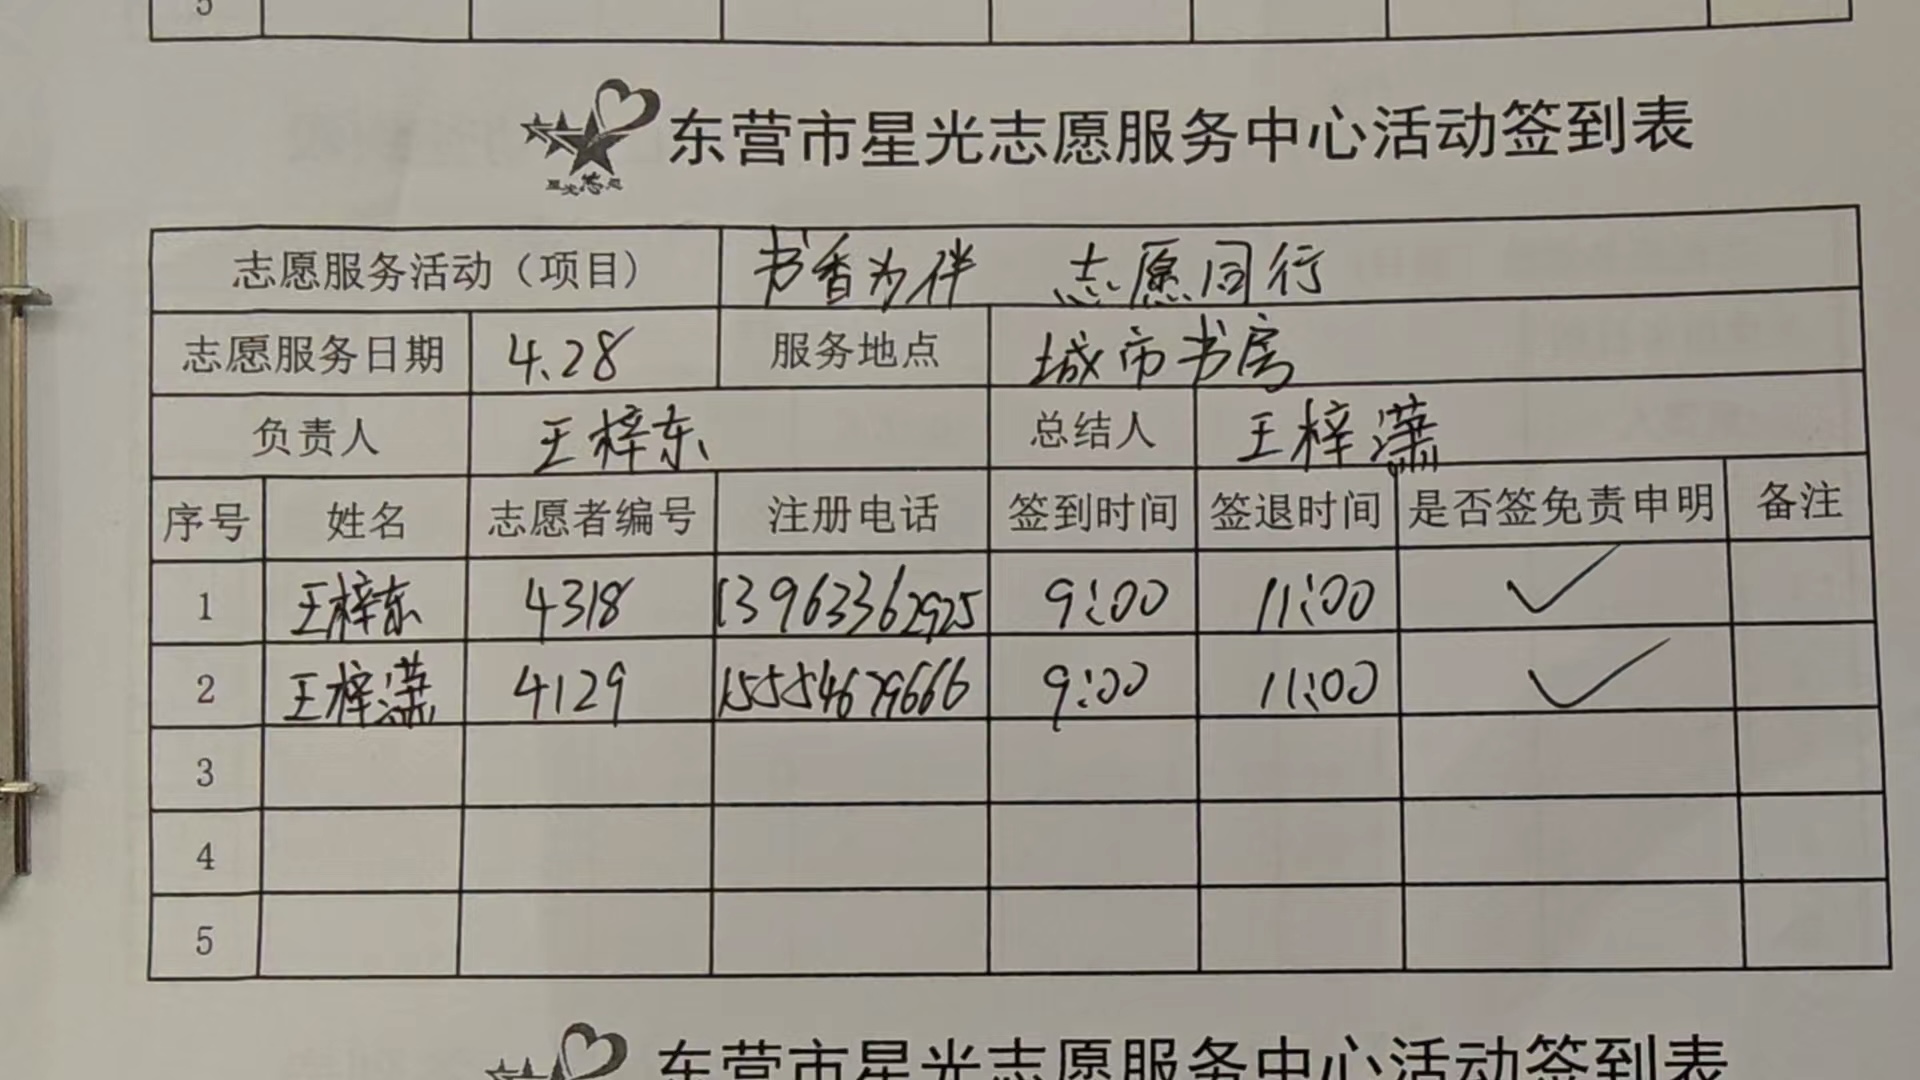 5
东营市星光志愿服务中心活动签到表
星光志愿
志愿服务活动（项目） 书香为伴 志愿同行
志愿服务日期 4.28 服务地点 城市书房
负责人 王梓东 总结人 王梓潇
序号 姓名 志愿者编号 注册电话 签到时间 签退时间 是否签免责申明 备注
1 王梓东 4318 13963362925 9:00 11:00 ✓
2 王梓潇 4129 15554679666 9:00 11:00 ✓
3
4
5
东营市星光志愿服务中心活动签到表